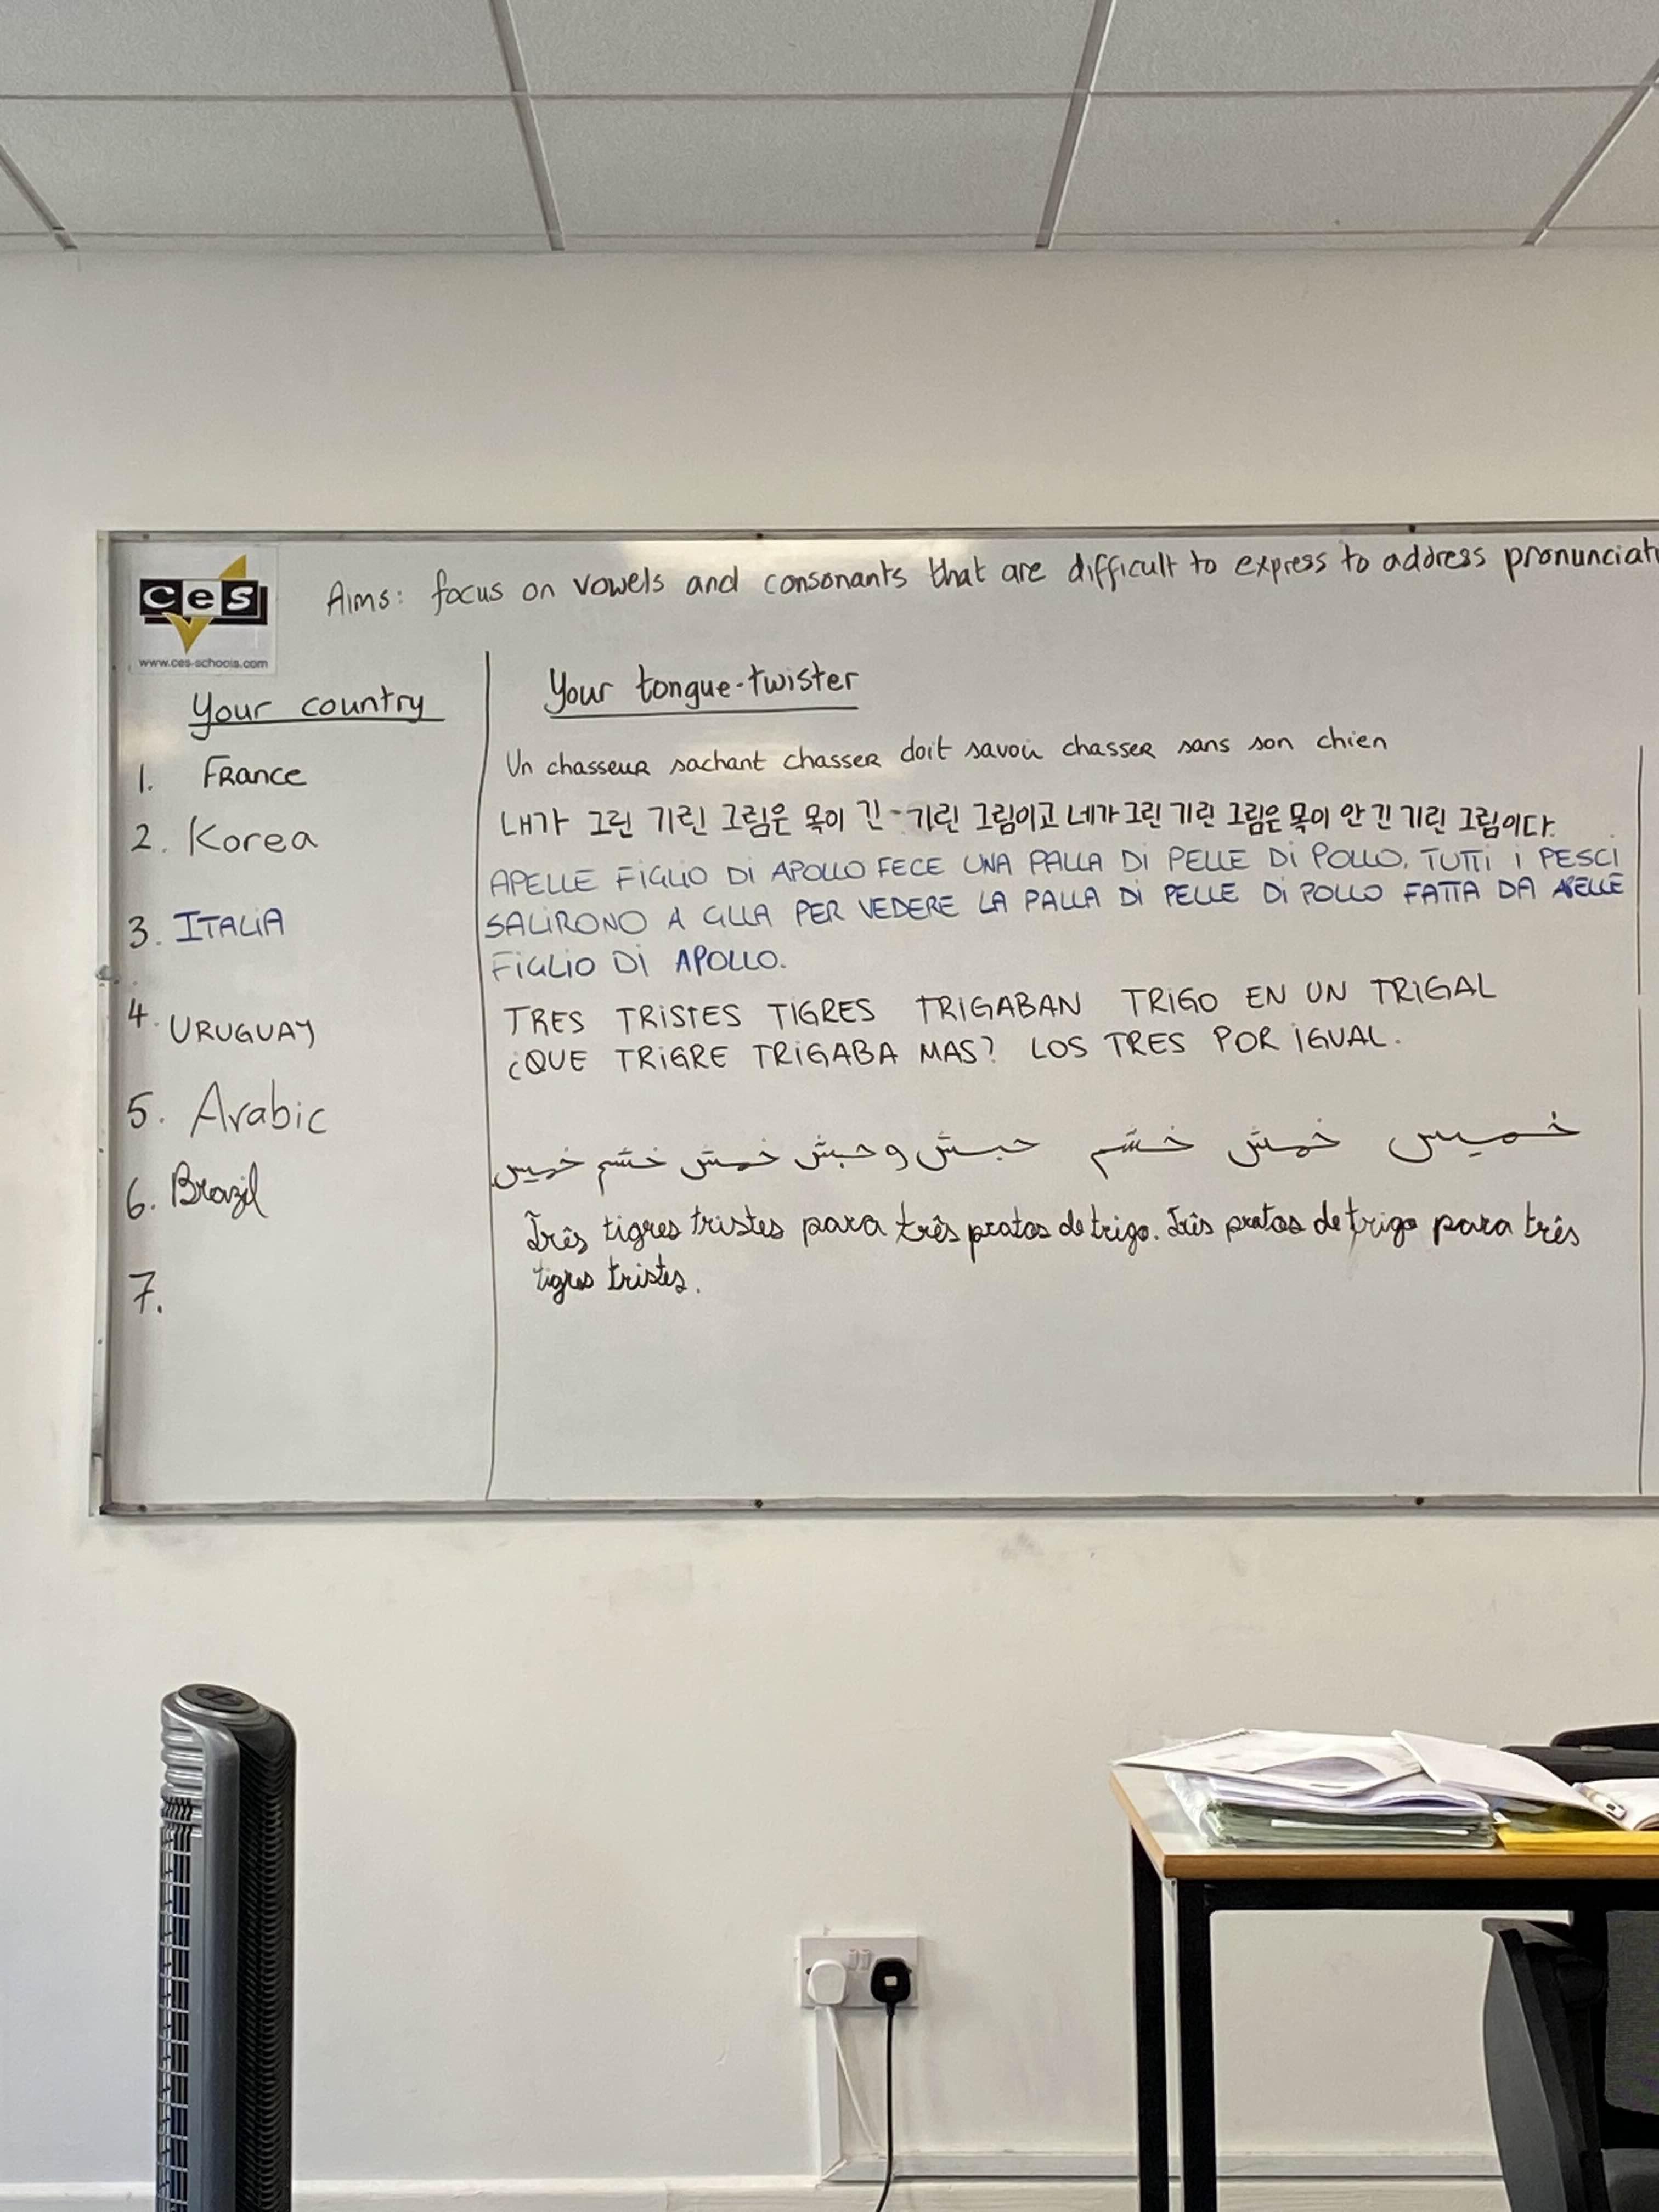 ces
www.ces-schools.com
Aims: focus on vowels and consonants that are difficult to express to address pronunciati
Your country
Your tongue-twister
1. France
Un chasseur sachant chasser doit savoir chasser sans son chien
2. Korea
내가 그린 기린 그림은 목이 긴 - 기린 그림이고 네가 그린 기린 그림은 목이 안 긴 기린 그림이다.
3. ITALIA
APELLE FIGLIO DI APOLLO FECE UNA PALLA DI PELLE DI POLLO. TUTTI I PESCI
SALIRONO A GLLA PER VEDERE LA PALLA DI PELLE DI POLLO FATTA DA APELLE
FIGLIO DI APOLLO.
4. URUGUAY
TRES TRISTES TIGRES TRIGABAN TRIGO EN UN TRIGAL
¿QUE TRIGRE TRIGABA MAS? LOS TRES POR IGUAL.
5. Arabic
خميس خمش خشم حبش وحبش خمش خشم خميس
6. Brazil
Três tigres tristes para três pratos de trigo. Três pratos de trigo para três
tigres tristes.
7.